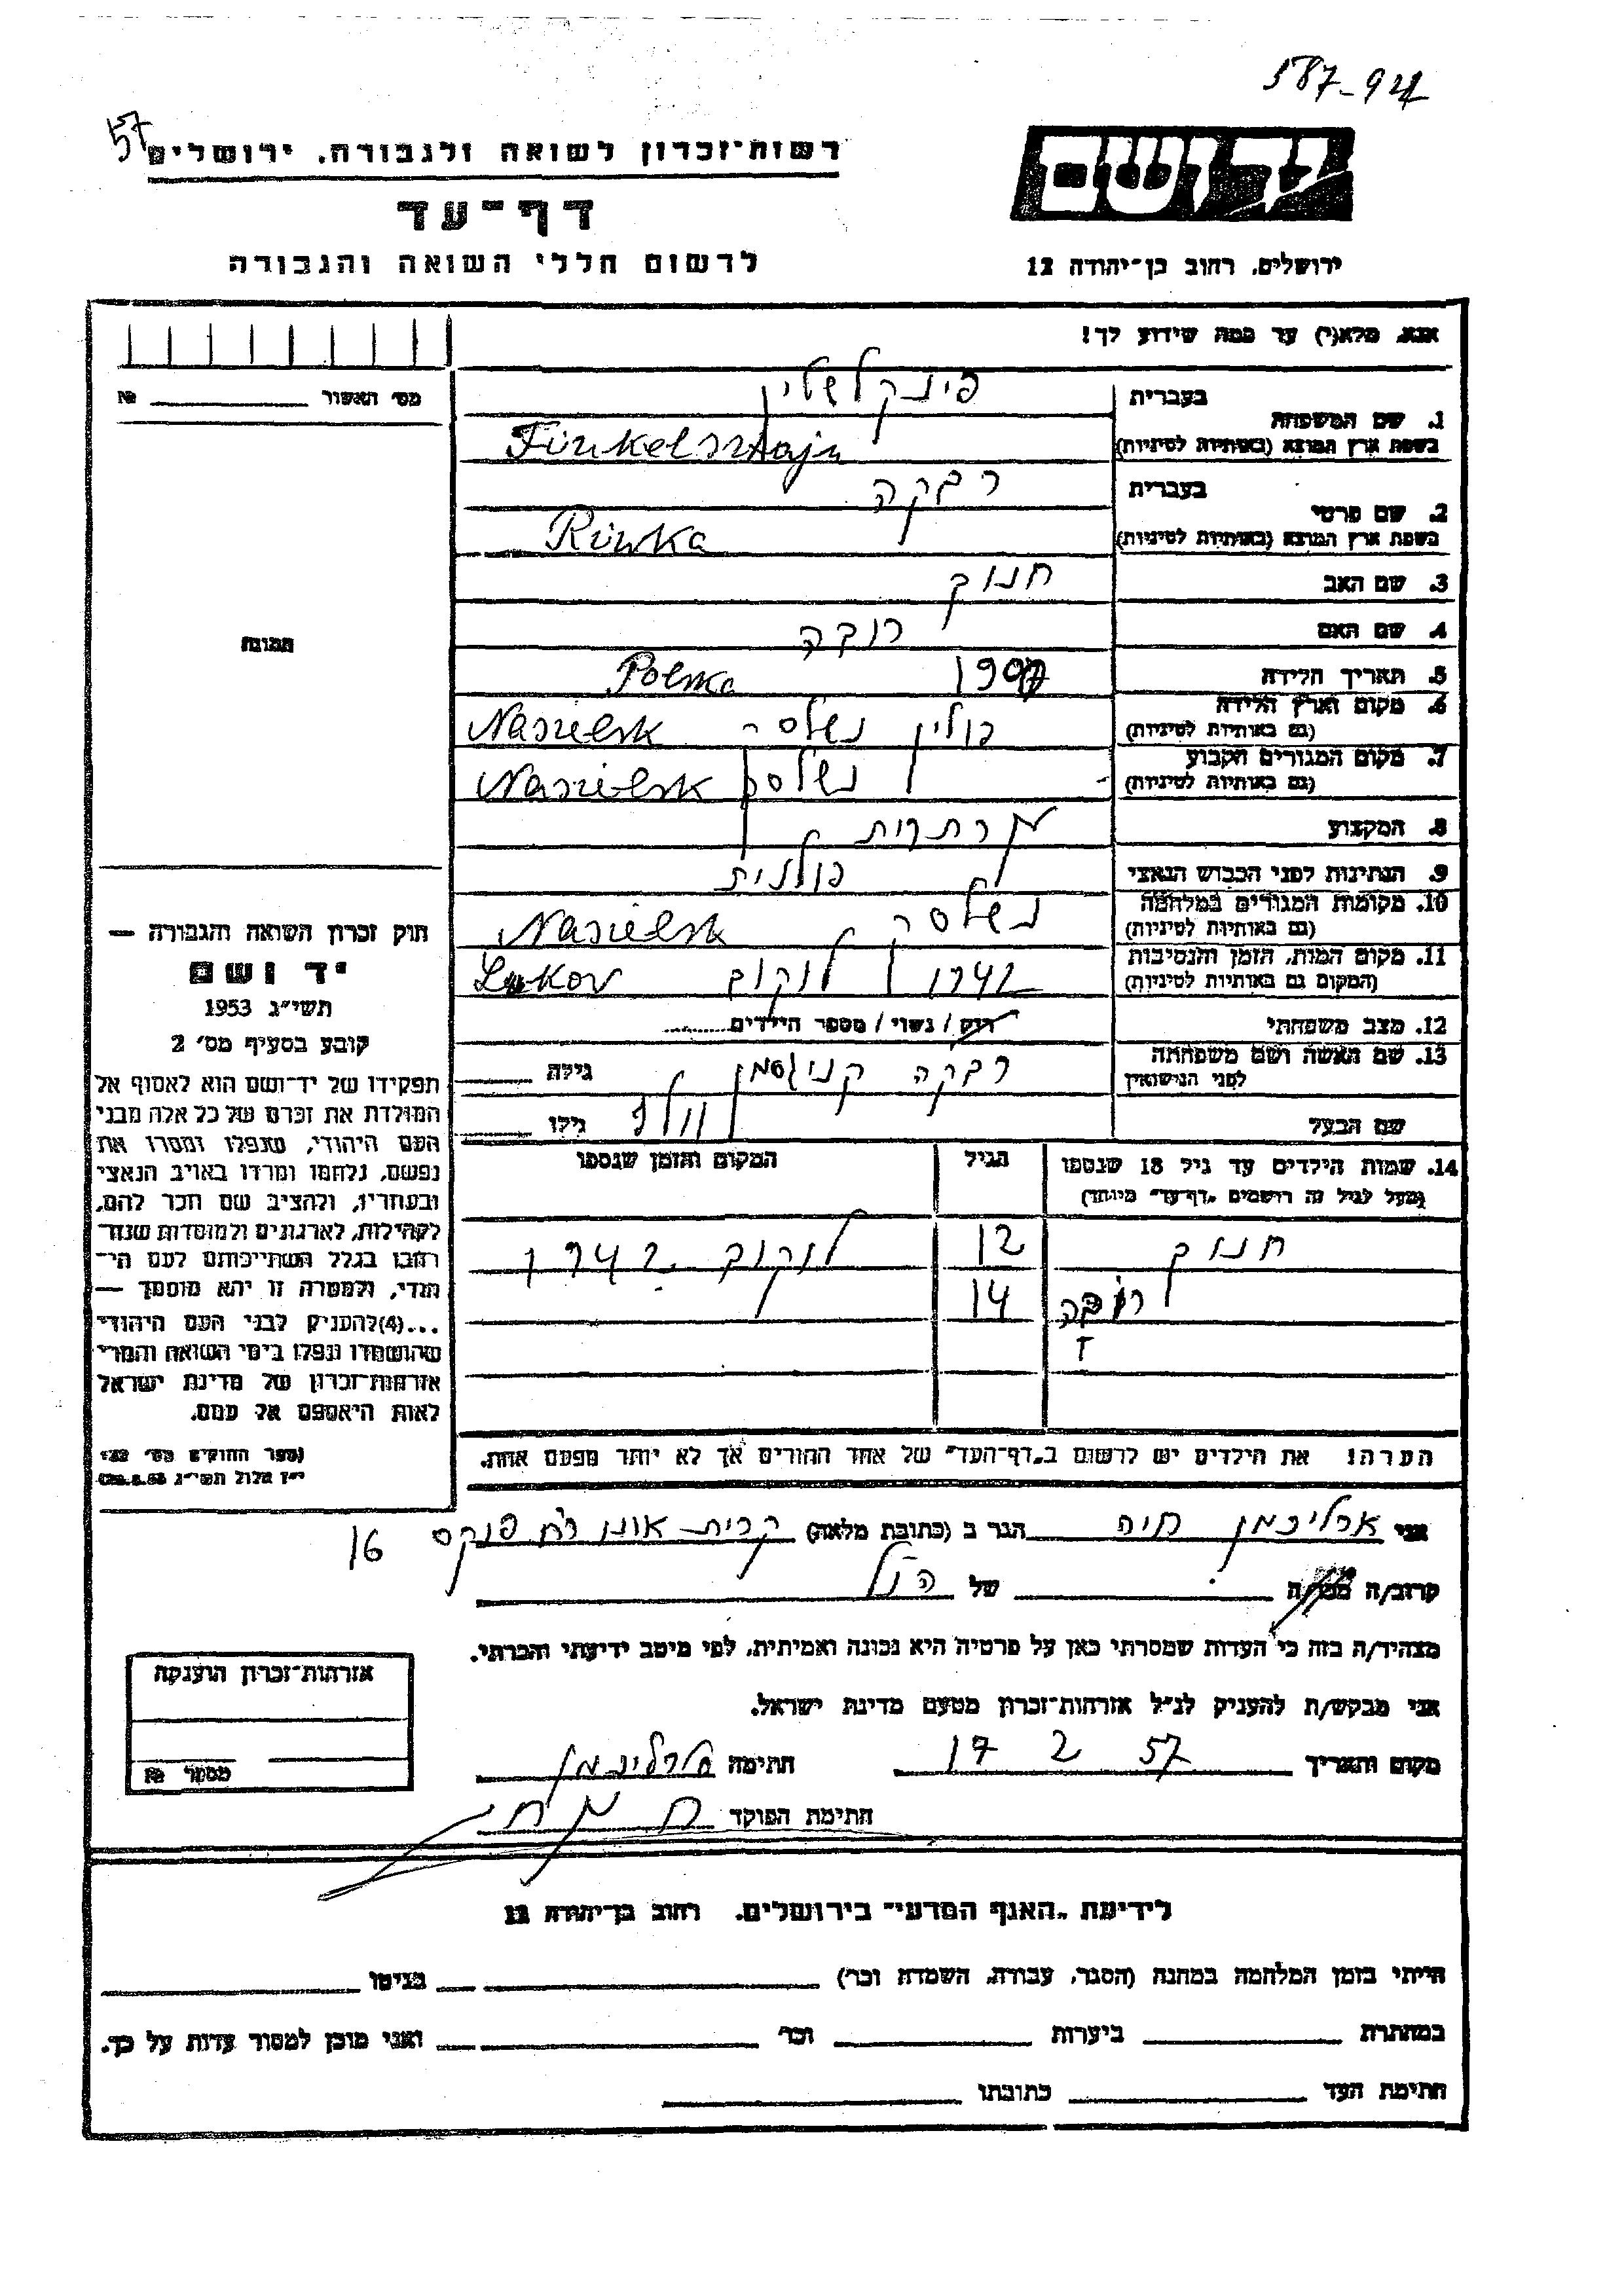 587-94
57
רשות־זכרון לשואה ולגבורה. ירושלים
יד ושם
דף־עד
לרשום חללי השואה והגבורה
ירושלים. רחוב בן־יהודה 12
אנא. מלא(י) עד כמה שידוע לך!
מס' האשור №
בעברית פינקלשטיין
1. שם המשפחה
בשפת ארץ המוצא (באותיות לטיניות) Finkelsztajn
בעברית רבקה
2. שם פרטי
בשפת ארץ המוצא (באותיות לטיניות) Riwka
3. שם האב חנוך
4. שם האם
תמונה
5. תאריך הלידה 1907 Polska
6. מקום וארץ הלידה
(גם באותיות לטיניות) פולין נשלסק Nasielsk
7. מקום המגורים הקבוע
(גם באותיות לטיניות) נשלסק Nasielsk
8. המקצוע
9. הנתינות לפני הכבוש הנאצי פולנית
10. מקומות המגורים במלחמה
(גם באותיות לטיניות) נשלסק Nasielsk
11. מקום המות, הזמן והנסיבות
(המקום גם באותיות לטיניות) 1942 לוקוב Lukov
12. מצב משפחתי רווק / נשוי / מספר הילדים
13. שם האשה ושם משפחתה
לפני הנישואין רבקה גילה
שם הבעל וולף גילו
חוק זכרון השואה והגבורה —
יד ושם
תשי"ג 1953
קובע בסעיף מס' 2
תפקידו של יד־ושם הוא לאסוף אל
המולדת את זכרם של כל אלה מבני
העם היהודי, שנפלו ומסרו את
נפשם, נלחמו ומרדו באויב הנאצי
ובעוזריו, ולהציב שם וזכר להם,
לקהילות, לארגונים ולמוסדות שנח־
רבו בגלל השתייכותם לעם הי־
הודי, ולמטרה זו יהא מוסמך —
...(4) להעניק לבני העם היהודי
שהושמדו ונפלו בימי השואה והמרי
אזרחות־זכרון של מדינת ישראל
לאות היאספם אל עמם.
(ספר החוקים מס' 132
י"ז אלול תשי"ג 28.8.53)
14. שמות הילדים עד גיל 18 שנספו הגיל המקום והזמן שנספו
(מעל לגיל זה רושמים "דף־עד" מיוחד)
חנוך 12 לוקוב 1942
14
הערה! את הילדים יש לרשום ב"דף־העד" של אחד ההורים אך לא יותר מפעם אחת.
אני ארליכמן חיה הגר ב (כתובת מלאה) קרית אונו רח' 16
קרוב/ה מכר/ה של הנ"ל
מצהיר/ה בזה כי העדות שמסרתי כאן על פרטיה היא נכונה ואמיתית, לפי מיטב ידיעתי והכרתי.
אני מבקש/ת להעניק לנ"ל אזרחות־זכרון מטעם מדינת ישראל.
מקום ותאריך 17 2 57 חתימה ארליכמן
חתימת הפוקד
אזרחות־זכרון הוענקה
מספר №
לידיעת "האגף המדעי" בירושלים. רחוב בן־יהודה 12
הייתי בזמן המלחמה במחנה (הסגר, עבודה, השמדה וכו') בגיטו
במחתרת ביערות וכו' ואני מוכן למסור עדות על כך.
חתימת העד כתובתו